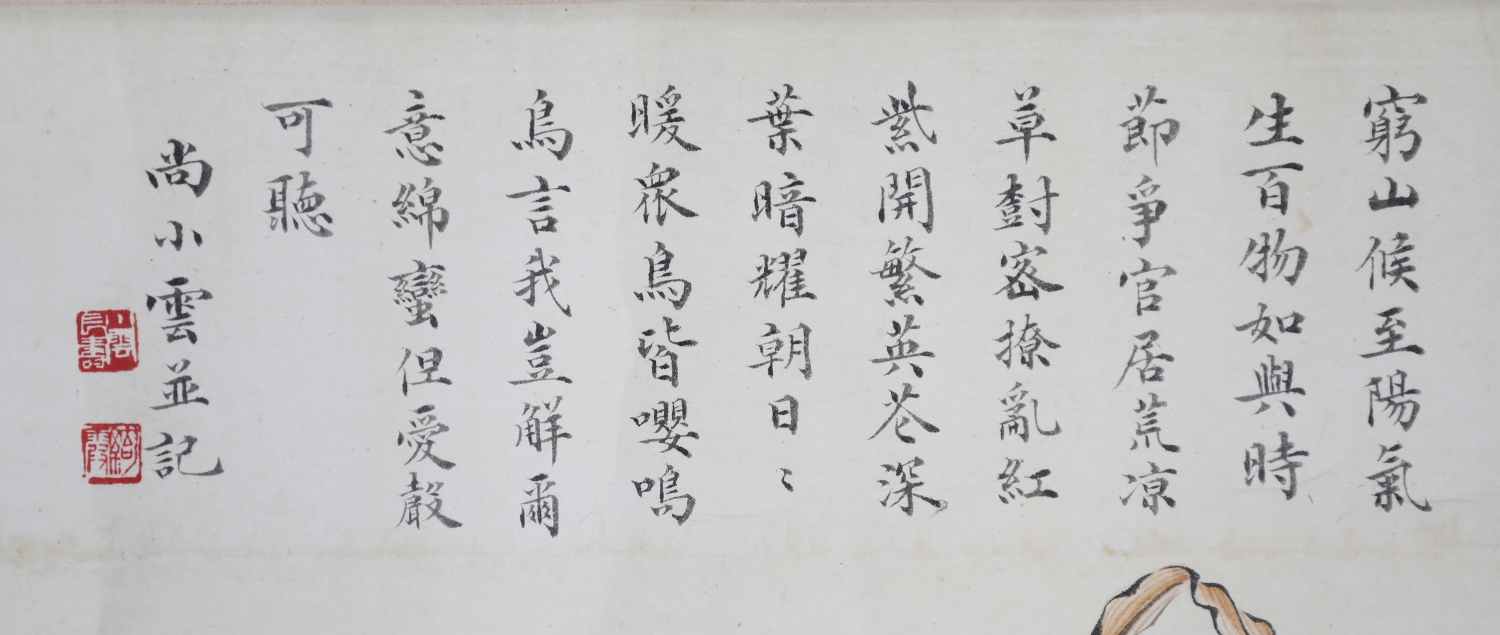 窮山候至陽氣
生百物如與時
節爭官居荒凉
草樹密撩亂紅
紫開繁英花深
葉暗耀朝日〻
暖衆鳥皆嚶鳴
鳥言我豈解爾
意綿蠻但愛聲
可聽
尚小雲並記
小雲長壽